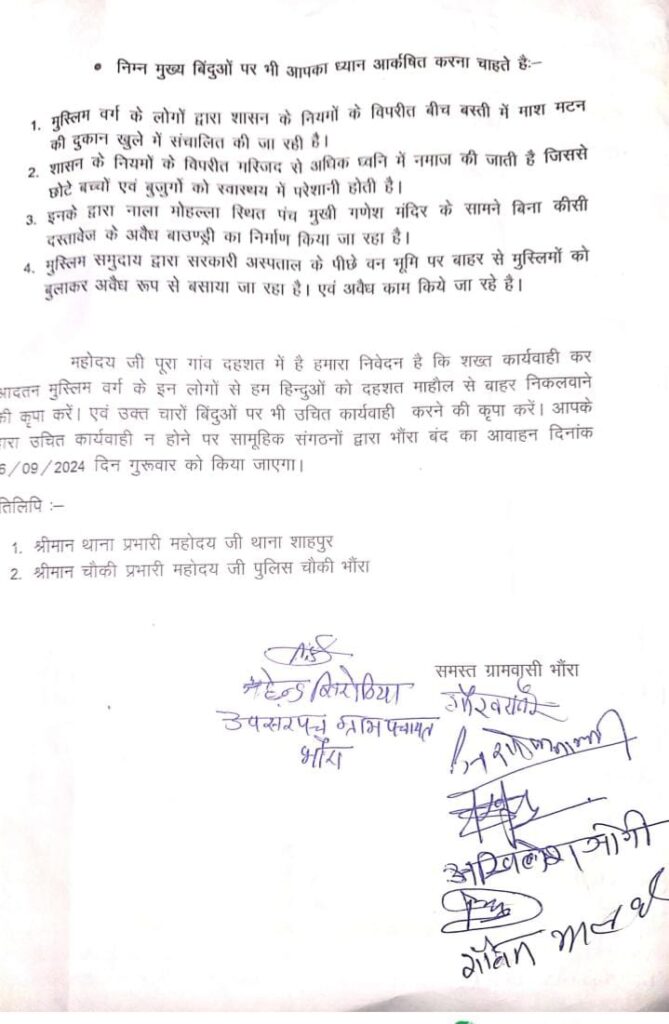 • निम्न मुख्य बिंदुओं पर भी आपका ध्यान आर्कषित करना चाहते हैः–
1. मुस्लिम वर्ग के लोगों द्वारा शासन के नियमों के विपरीत बीच बस्ती में माश मटन
की दुकान खुले में संचालित की जा रही है।
2. शासन के नियमों के विपरीत मस्जिद से अधिक ध्वनि में नमाज की जाती है जिससे
छोटे बच्चों एवं बुजुगों को स्वास्थय में परेशानी होती है।
3. इनके द्वारा नाला मोहल्ला स्थित पंच मुखी गणेश मंदिर के सामने बिना कीसी
दस्तावेज के अवैध बाउण्ड्री का निर्माण किया जा रहा है।
4. मुस्लिम समुदाय द्वारा सरकारी अस्पताल के पीछे वन भूमि पर बाहर से मुस्लिमों को
बुलाकर अवैध रूप से बसाया जा रहा है। एवं अवैध काम किये जा रहे है।
महोदय जी पूरा गांव दहशत में है हमारा निवेदन है कि शख्त कार्यवाही कर
आदतन मुस्लिम वर्ग के इन लोगों से हम हिन्दुओं को दहशत माहौल से बाहर निकलवाने
की कृपा करें। एवं उक्त चारों बिंदुओं पर भी उचित कार्यवाही करने की कृपा करें। आपके
ारा उचित कार्यवाही न होने पर सामूहिक संगठनों द्वारा भौंरा बंद का आवाहन दिनांक
6/09/2024 दिन गुरूवार को किया जाएगा।
तिलिपि :–
1. श्रीमान थाना प्रभारी महोदय जी थाना शाहपुर
2. श्रीमान चौकी प्रभारी महोदय जी पुलिस चौकी भौंरा
समस्त ग्रामवासी भौंरा
उपसरपंच ग्राम पंचायत
भौंरा
अखिलेश जोगी